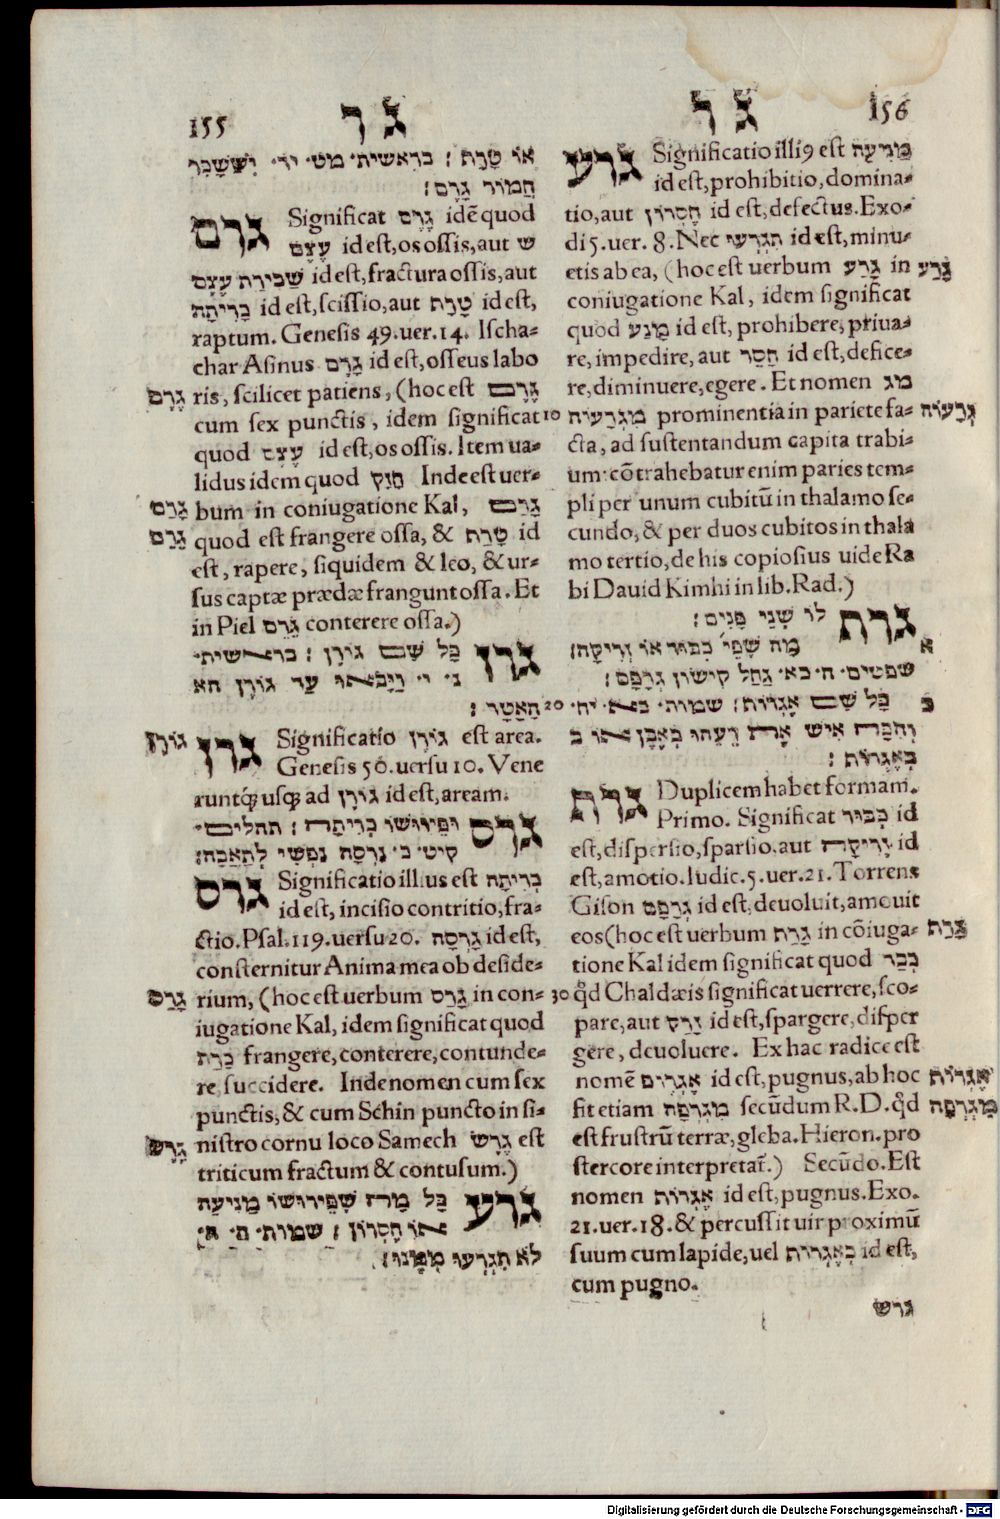 155 גר
או טָרַח׃ בראשית· מט· יד· יִשָּׂשכָר
חֲמור גָרֶם׃
גרם Significat גֶרֶם idē quod
עֶצֶם id est, os ossis, aut ש
שְׁבִירַת עֶצֶם id est, fractura ossis, aut
בְרִיתָה id est, scissio, aut טָרַח id est,
raptum. Genesis 49. uer. 14. Ischa-
char Asinus גָרֶם id est, osseus labo
גֶרֶם ris, scilicet patiens, (hoc est גֶרֶם
cum sex punctis, idem significat 10
quod עֶצֶם id est, os ossis. Item ua-
lidus idem quod חָזָק Inde est uer-
גָרַם bum in coniugatione Kal, גָרַם
גֵרַם quod est frangere ossa, & טָרַח id
est, rapere, siquidem & leo, & ur-
sus captæ prædæ frangunt ossa. Et
in Piel גֵרֵם conterere ossa.)
גרן כָּל שֵׁם גורֶן׃ בראשית·
נ· י· וַיָּבֹאוּ עַד גורֶן הא
הָאָטָד׃ 20
גורֶן גרן Significatio גורֶן est area.
Genesis 50. uersu 10. Vene
runtq; usq; ad גורֶן id est, aream.
גרס ופֵירוּשׁו בְּרִיתָה׃ תהלים·
קיט· כ· גָרְסָה נַפְשִׁי לְתַאֲבָה׃
גרס Significatio illius est בְּרִיתָה
id est, incisio contritio, fra-
ctio. Psal. 119. uersu 20. גָרְסָה id est,
consternitur Anima mea ob deside-
גָרַס rium, (hoc est uerbum גָרַס in con- 30
iugatione Kal, idem significat quod
כָּרַת frangere, conterere, contunde-
re, succidere. Inde nomen cum sex
punctis, & cum Schin puncto in si-
גֶרֶשׂ nistro cornu loco Samech גֶרֶשׂ est
triticum fractum & contusum.)
גרע כָּל מַה שֶׁפֵּירוּשׁו מַנִיעָה
או חֶסְרון׃ שמות· ה· ח·
לֹא תִגְרְעוּ מִמֶּנּוּ׃
גר 156
גרע Significatio illi9 est מַנִיעָה
id est, prohibitio, domina-
tio, aut חֶסְרון id est, defectus. Exo-
di 5. uer. 8. Nec תִגְרְעִי id est, minu-
etis ab ea, (hoc est uerbum גָרַע in גָרַע
coniugatione Kal, idem significat
quod מָנַע id est, prohibere, priua-
re, impedire, aut חָסַר id est, defice-
re, diminuere, egere. Et nomen מג
מִגְרַעות prominentia in pariete fa- גְרַעות
cta, ad sustentandum capita trabi-
um: cōtrahebatur enim paries tem-
pli per unum cubitū in thalamo se-
cundo, & per duos cubitos in thala
mo tertio, de his copiosius uide Ra
bi Dauid Kimhi in lib. Rad.)
גרף לו שְׁנֵי פָּנִים׃
מַה שֶׁפֵּי׳ כִּבּוּד או זְרִיקָה׃ א
שפטים· ה· כא· נַחַל קִישׁון גְרָפָם׃
כָּל שֵׁם אֶגְרוף׃ שמות· כא· יח· ב
וְהִכָּה אִישׁ אֶת רֵעֵהוּ בְאֶבֶן או ב
בְאֶגְרוף׃
גרף Duplicem habet formam.
Primo. Significat כִּבּוּד id
est, dispersio, sparsio, aut זְרִיקָה id
est, amotio. Iudic. 5. uer. 21. Torrens
Gison גְרָפָם id est, deuoluit, amouit
eos (hoc est uerbum גָרַף in cōiuga- גָרַף
tione Kal idem significat quod כִּבַּד
qd̄ Chaldæis significat uerrere, sco-
pare, aut זָרַק id est, spargere, disper
gere, deuoluere. Ex hac radice est
nomē אֶגְרוּף id est, pugnus, ab hoc אֶגְרוף
fit etiam מִגְרָפָה secūdum R. D. qd̄ מִגְרָפָה
est frustrū terræ, gleba. Hieron. pro
stercore interpretat̄.) Secūdo. Est
nomen אֶגְרוף id est, pugnus. Exo.
21. uer. 18. & percussit uir proximū
suum cum lapide, uel בְאֶגְרוף id est,
cum pugno.
גרש
Digitalisierung gefördert durch die Deutsche Forschungsgemeinschaft - DFG